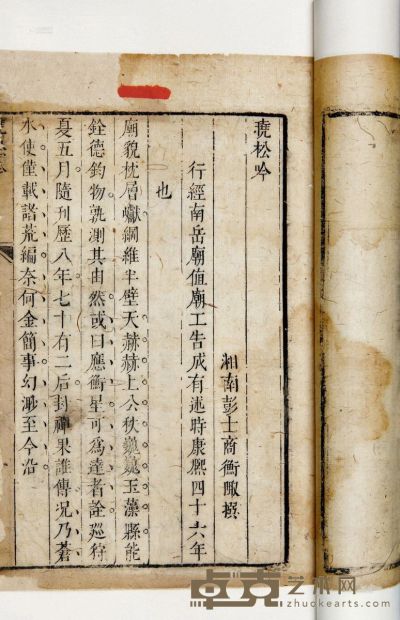 曉松吟
湘南彭士商衡畞撰
行經南岳廟值廟工告成有述時康熙四十六年
也
廟貌枕層巘綱維半壁天赫赫上公秩巍巍玉藻縣能
銓德鈞物孰測其由然或曰應衡星可為達者詮巡狩
夏五月隨刊歷八年七十有二后封禪果誰傳況乃蒼
水使僅載諸荒編奈何金簡事幻渺至今沿
卓克艺术网
zhuokearts.com